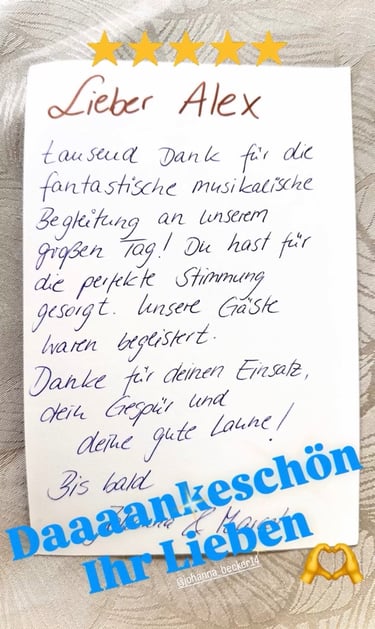 Lieber Alex
tausend Dank für die
fantastische musikalische
Begleitung an unserem
großen Tag! Du hast für
die perfekte Stimmung
gesorgt. Unsere Gäste
waren begeistert.
Danke für deinen Einsatz,
dein Gespür und
deine gute Laune!
Bis bald
&
Daaaankeschön
Ihr Lieben
@johanna_becker14